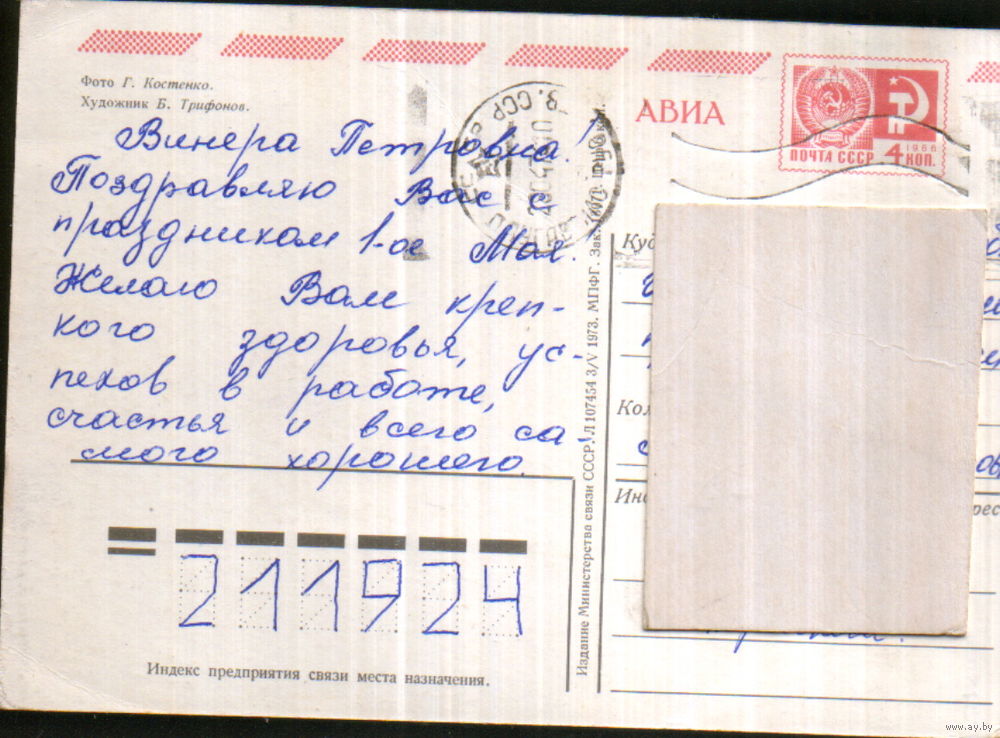 Фото Г. Костенко.
Художник Б. Трифонов.
Винера Петровна!
Поздравляю Вас с
праздником 1-ое Мая!
Желаю Вам креп-
кого здоровья, ус-
пехов в работе,
счастья и всего са
мого хорошего.
211924
Индекс предприятия связи места назначения.
Издание Министерства связи СССР. Л 107454 3/V 1973. МПФГ. Зак.
АВИА
1966
ПОЧТА СССР 4 КОП.
Куд
Ко
Ин
рес
www.ay.by